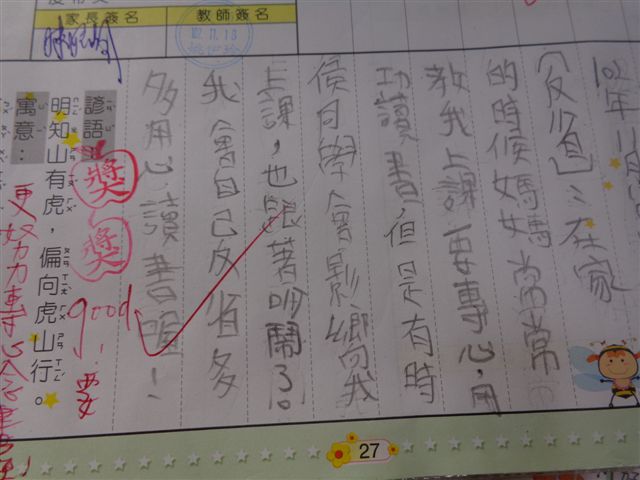 家長簽名
教師簽名
102.11.13
102年11月
〈反省〉:在家
的時候媽媽常常
教我上課要專心,用
功讀書,但是有時
候同學會影嚮我
上課,也跟著吵鬧了。
我會自己反省多
多用心讀書喔!
獎
獎
good!要
更努力專心
諺語:
明知山有虎,偏向虎山行。
寓意:
27